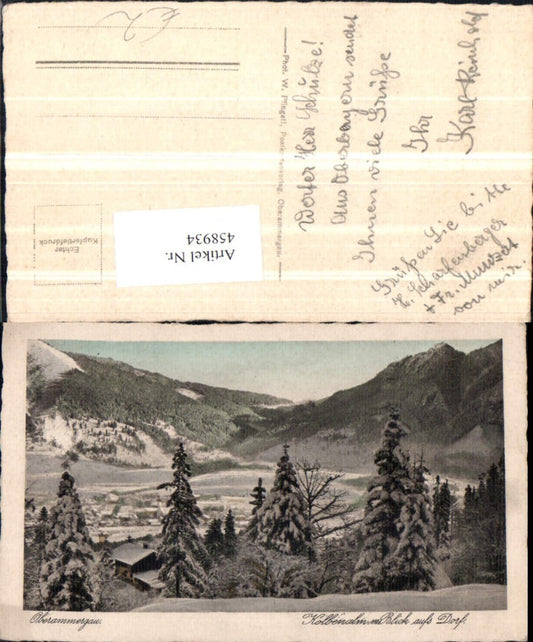 Werter Herr Schulze!
Aus Oberbayern sendet
Ihnen viele Grüße
Ihr
Karl Reinhold
Grüßen Sie bitte
H. Scharfenberger
+ Fr. Muntzert
von mir.
Phot. W. Pfingstl, Postkartenverlag, Oberammergau.
Echter
Kupfertiefdruck
Artikel Nr.
458934
Oberammergau.
Kolbenalm m. Blick aufs Dorf.